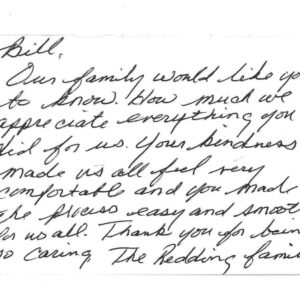 Bill,
Our family would like yo
to know. How much we
appreciate everything you
did for us. Your kindness
made us all feel very
comfortable and you made
the preciso easy and smoot
for us all. Thank you for bein
so caring. The Redding famil